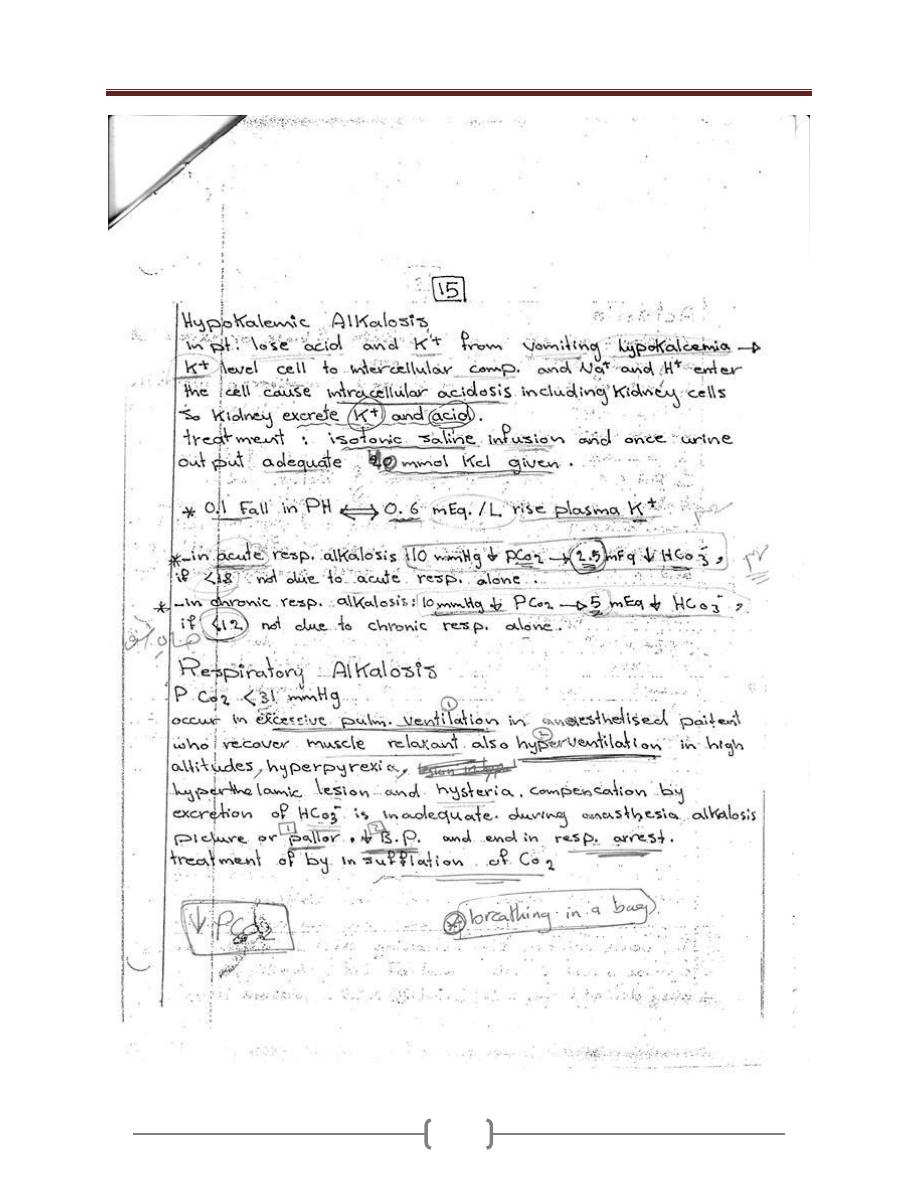 15
Hypokalemic Alkalosis
in pt. lose acid and K+ from vomiting hypokalcemia →
K+ level cell to intercellular comp. and Na+ and H+ enter
the cell cause intracellular acidosis including Kidney cells
so Kidney excrete K+ and acid.
treatment : isotonic saline infusion and once urine
out put adequate mmol Kcl given.
* 0.1 Fall in PH ⟺ 0.6 mEq./L rise plasma K+
*-in acute resp. alkalosis : 10 mmHg ↓ PCo2 → 2.5 mEq ↓ HCo3-,
if <18 not due to acute resp. alone.
*-in chronic resp. alkalosis: 10 mmHg ↓ PCo2 → 5 mEq ↓ HCo3-,
if <12 not due to chronic resp. alone.
Respiratory Alkalosis
P Co2 <31 mmHg
1
occur in excessive pulm. ventilation in anaesthelised paitent
2
who recover muscle relaxant also hyperventilation in high
altitudes, hyperpyrexia,
hyperthelamic lesion and hysteria. compencation by
excretion of HCo3- is inadequate. during anasthesia alkalosis
1 2
picture or pallor, ↓ B.P. and end in resp. arrest.
treatment of by insufflation of Co2
↓ PCo2
* breathing in a bag